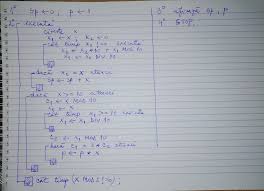 1° Sp ← 0; p ← 1
2° execută
citește x
x1 ← x; x2 ← 0
cât timp x1 != 0 execută
x2 ← x2 * 10 + x1 MOD 10
x1 ← x1 DIV 10
dacă x2 = x atunci
Sp ← Sp + x
dacă x >= 10 atunci
x1 ← x
cât timp x1 >= 10 execută
x1 ← x1 DIV 10
x MOD 10
dacă atunci
p ← p * x
cât timp (x MOD 2 != 0);
3° afișează Sp, p
4° STOP.